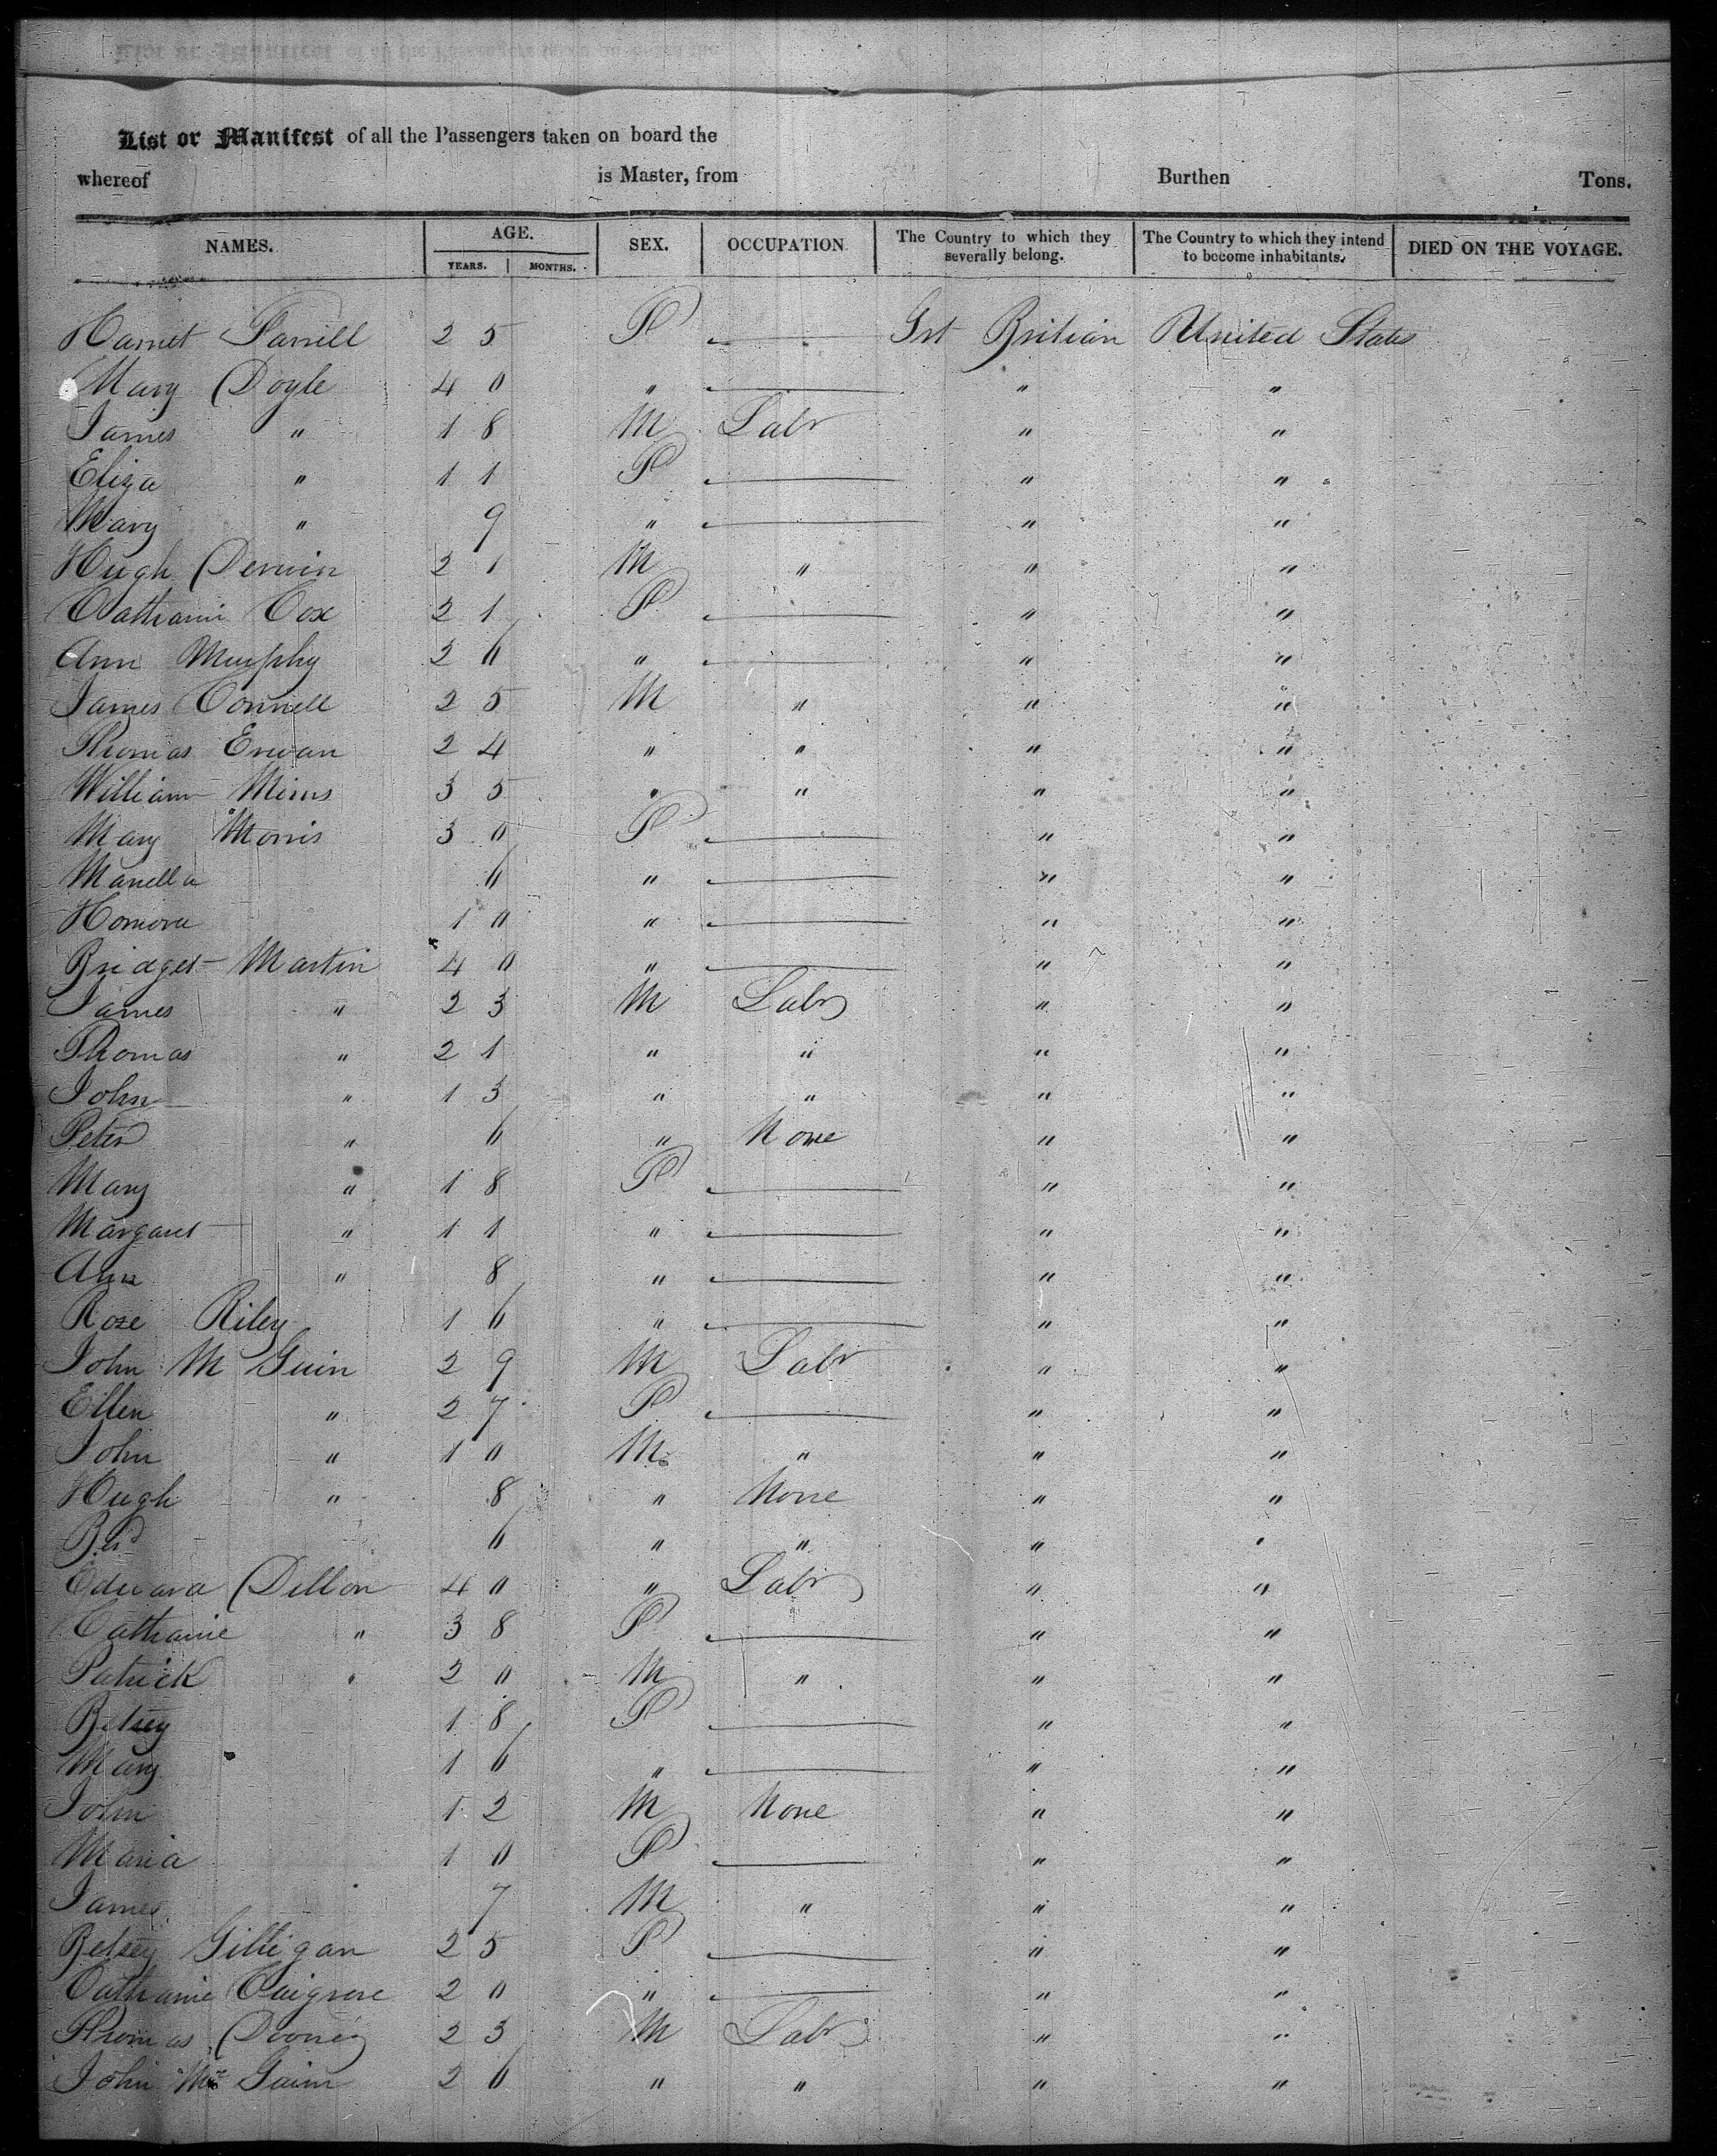 List or Manifest of all the Passengers taken on board the
whereof is Master, from Burthen Tons.
NAMES. AGE. SEX. OCCUPATION. The Country to which they severally belong. The Country to which they intend to become inhabitants. DIED ON THE VOYAGE.
YEARS. MONTHS.
Harriet Farrell 25 F — Grt Britian United States
Mary Doyle 40 " — " "
James " 18 M Labr " "
Eliza " 11 F — " "
Mary " 9 " — " "
Hugh Derwin 21 M " " "
Catharine Cox 21 F — " "
Ann Murphy 26 " — " "
James Connell 25 M " " "
Thomas Erwan 24 " " " "
William Mims 35 " " " "
Mary Morris 30 F — " "
Manella 6 " — " "
Honora 10 " — " "
Bridget Martin 40 " — " "
James " 23 M Labr " "
Thomas " 21 " " " "
John " 13 " " " "
Peter " 6 " None " "
Mary " 18 F — " "
Margaret " 11 " — " "
Ann " 8 " — " "
Rose Riley 16 " — " "
John M Guin 29 M Labr " "
Ellen " 27 F — " "
John " 10 M " " "
Hugh " 8 " None " "
6 " " " "
Edward Dillon 40 " Labr " "
Catharine " 38 F — " "
Patrick " 20 M " " "
Betsey 18 F — " "
Mary 16 " — " "
John 12 M None " "
Maria 10 F — " "
James 7 M " " "
Betsey Gilligan 25 F — " "
Catharine 20 " — " "
Thomas Dooney 23 M Labr " "
John Mc Guinn 26 " " " "